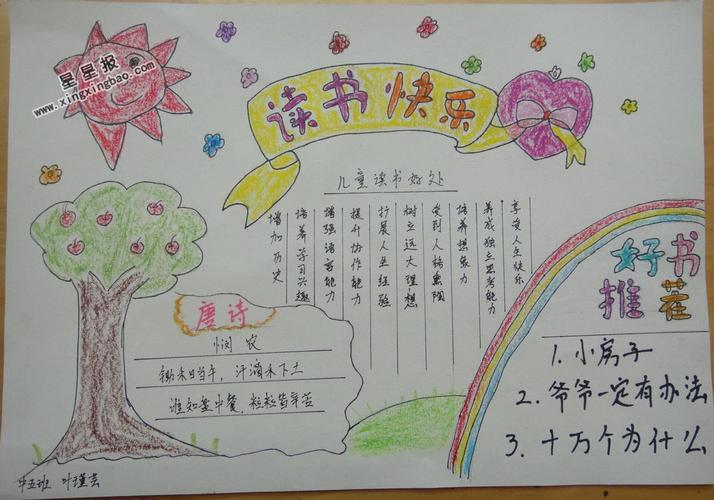 星星报
www.xingxingbao.com
读书快乐
儿童读书好处
增加历史
培养学习兴趣
增强语言能力
提升协作能力
扩展人生经验
树立远大理想
受到人格熏陶
培养想象力
养成独立思考能力
享受人生快乐
唐诗
悯农
锄禾日当午，汗滴禾下土
谁知盘中餐，粒粒皆辛苦
好书
推荐
1. 小房子
2. 爷爷一定有办法
3. 十万个为什么
中五班 叶瑾芸